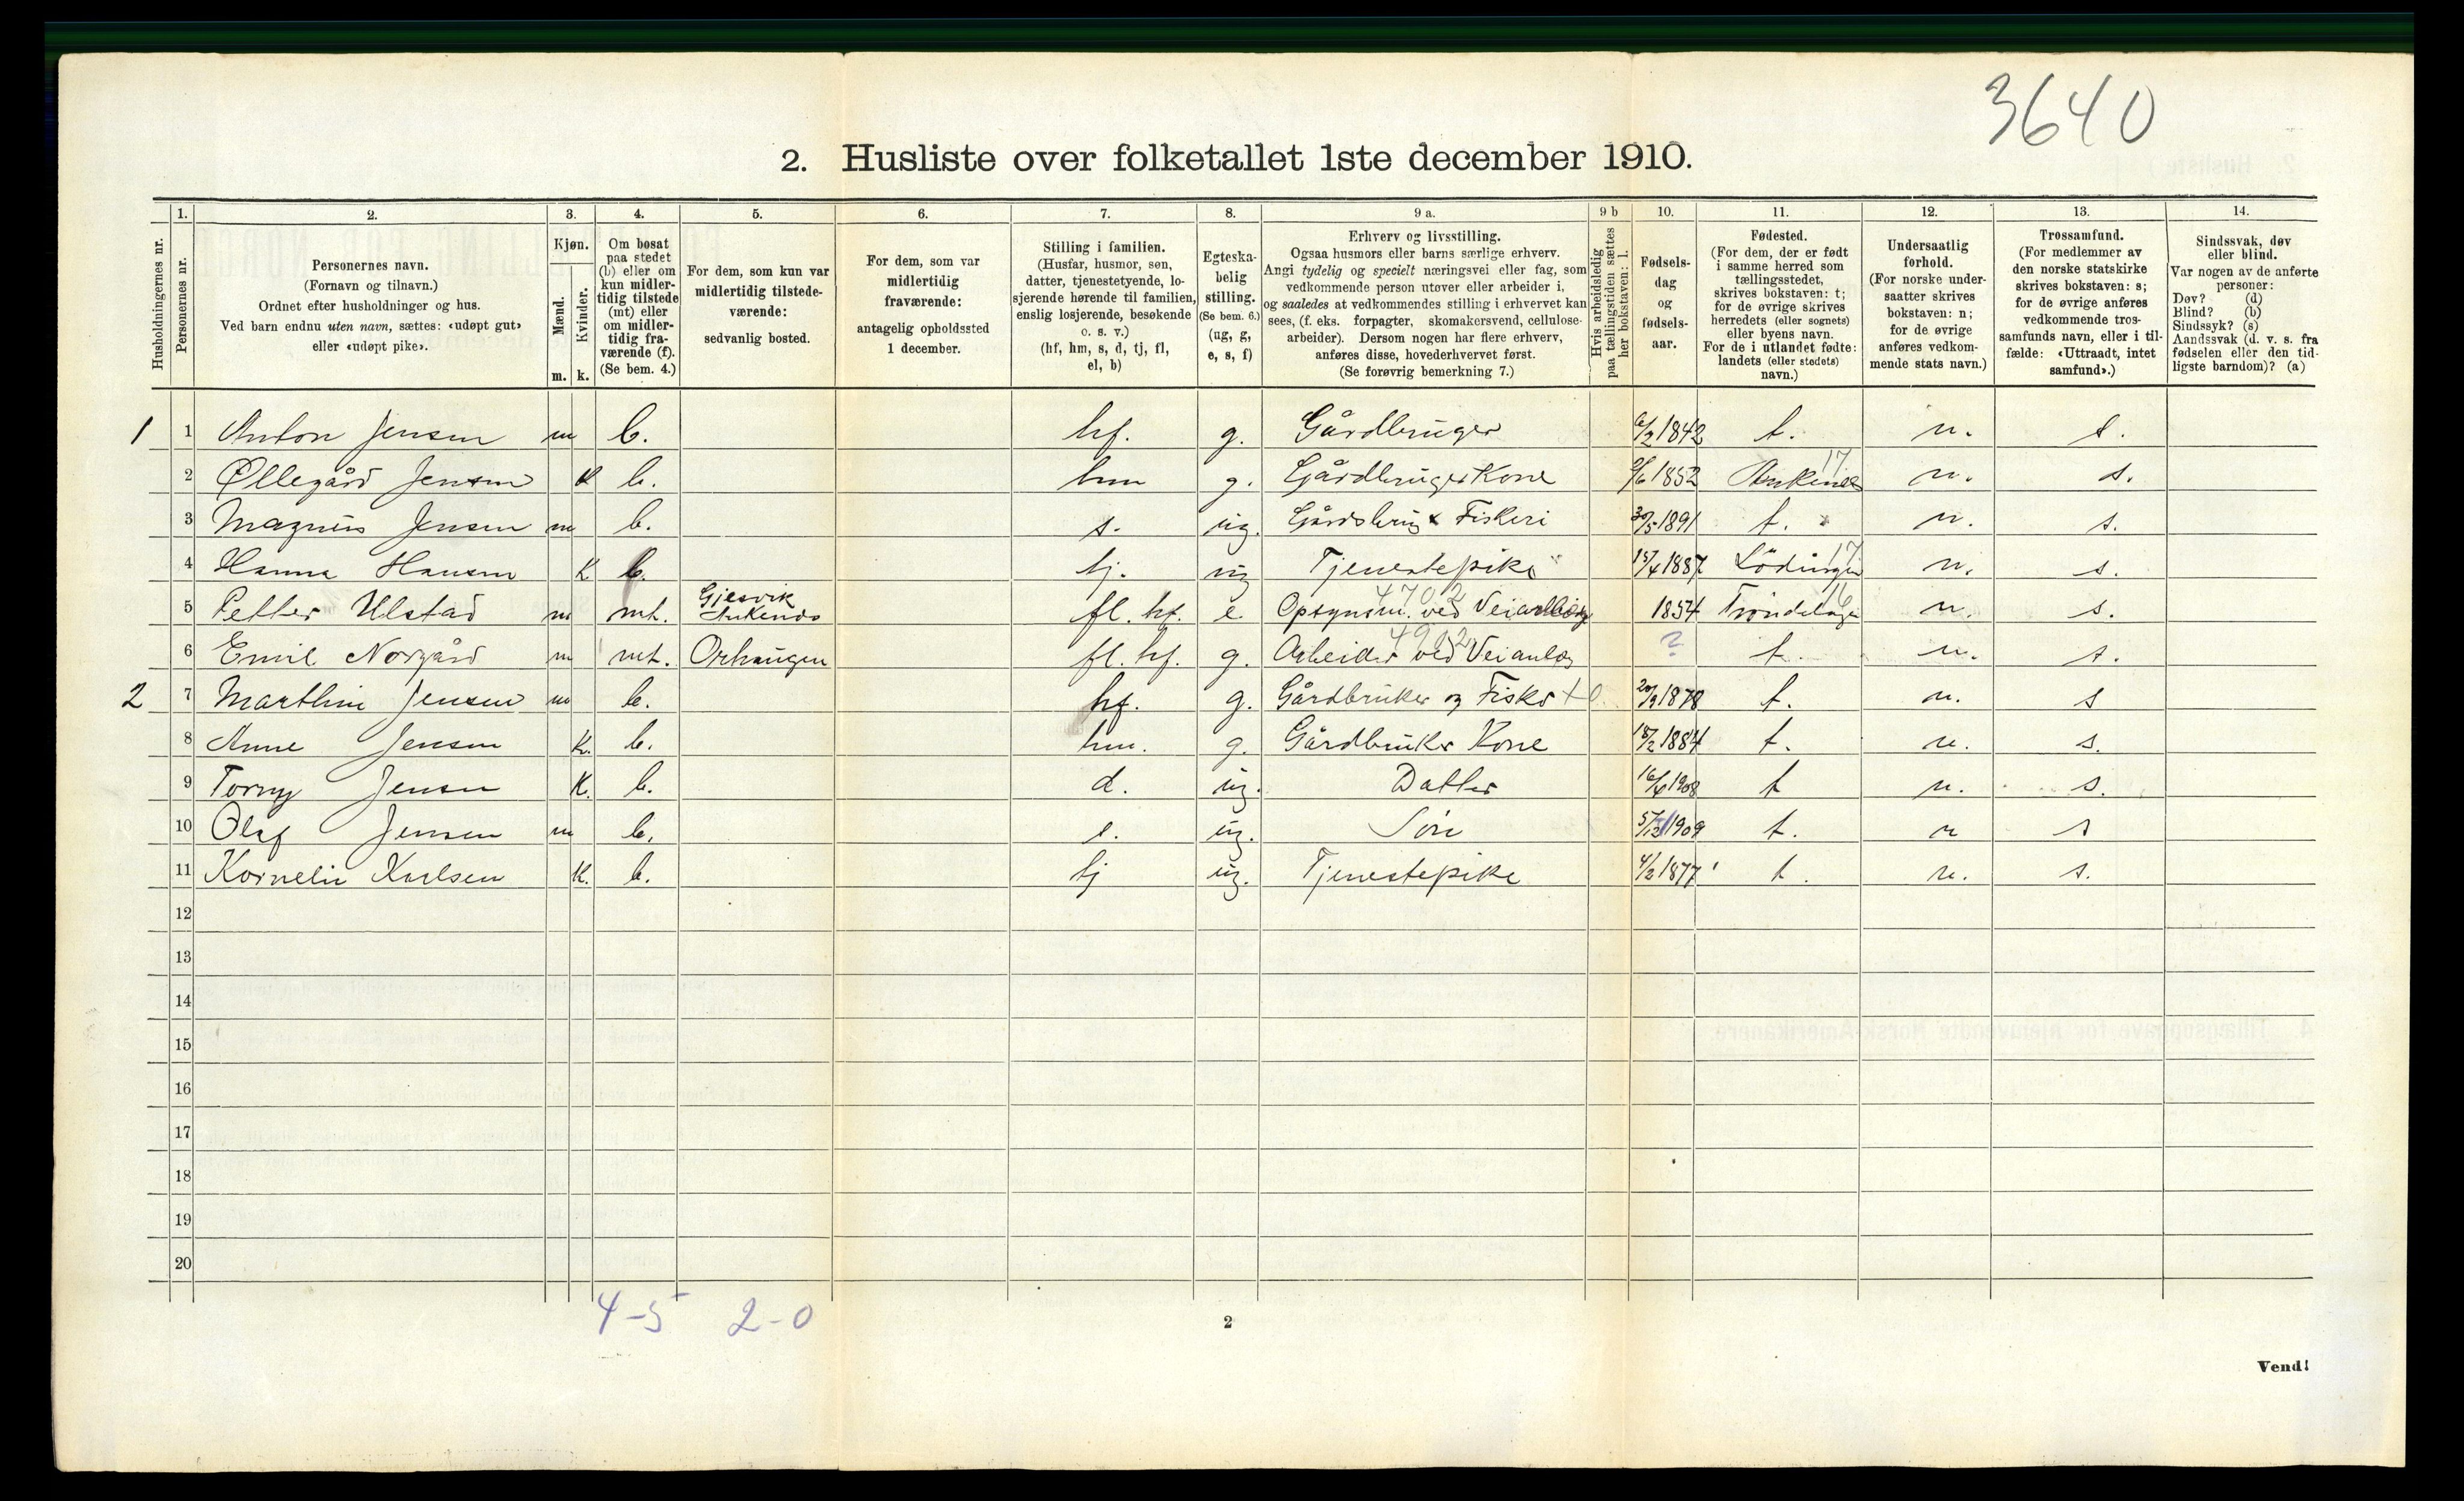 3640
2. Husliste over folketallet 1ste december 1910.
Husholdningernes nr.
1. 2. 3. 4. 5. 6. 7. 8. 9 a. 9 b 10. 11. 12. 13. 14.
Personernes nr.
Personernes navn.
(Fornavn og tilnavn.)
Ordnet efter husholdninger og hus.
Ved barn endnu uten navn, sættes: «udøpt gut»
eller «udøpt pike».
Kjøn.
Mænd.
Kvinder.
m. k.
Om bosat
paa stedet
(b) eller om
kun midler-
tidig tilstede
(mt) eller
om midler-
tidig fra-
værende (f).
(Se bem. 4.)
For dem, som kun var
midlertidig tilstede-
værende:
sedvanlig bosted.
For dem, som var
midlertidig
fraværende:
antagelig opholdssted
1 december.
Stilling i familien.
(Husfar, husmor, søn,
datter, tjenestetyende, lo-
sjerende hørende til familien,
enslig losjerende, besøkende
o. s. v.)
(hf, hm, s, d, tj, fl,
el, b)
Egteska-
belig
stilling.
(Se bem. 6.)
(ug, g,
e, s, f)
Erhverv og livsstilling.
Ogsaa husmors eller barns særlige erhverv.
Angi tydelig og specielt næringsvei eller fag, som
vedkommende person utøver eller arbeider i,
og saaledes at vedkommendes stilling i erhvervet kan
sees, (f. eks. forpagter, skomakersvend, cellulose-
arbeider). Dersom nogen har flere erhverv,
anføres disse, hovederhvervet først.
(Se forøvrig bemerkning 7.)
Hvis arbeidsledig
paa tællingstiden sættes
her bokstaven: l.
Fødsels-
dag
og
fødsels-
aar.
Fødested.
(For dem, der er født
i samme herred som
tællingsstedet,
skrives bokstaven: t;
for de øvrige skrives
herredets (eller sognets)
eller byens navn.
For de i utlandet fødte:
landets (eller stedets)
navn.)
Undersaatlig
forhold.
(For norske under-
saatter skrives
bokstaven: n;
for de øvrige
anføres vedkom-
mende stats navn.)
Trossamfund.
(For medlemmer av
den norske statskirke
skrives bokstaven: s;
for de øvrige anføres
vedkommende tros-
samfunds navn, eller i til-
fælde: «Uttraadt, intet
samfund».)
Sindssvak, døv
eller blind.
Var nogen av de anførte
personer:
Døv? (d)
Blind? (b)
Sindssyk? (s)
Aandssvak (d. v. s. fra
fødselen eller den tid-
ligste barndom)? (a)
1 1 Anton Jensen m b. hf. g. Gårdbruger 6/2 1842 t. n. s.
2 Øllegård Jensen K b. hm g. Gårdbruger Kone /6 1852 Ankenes 17 n. s.
3 Magnus Jensen m b. s. ug. Gårdsbrug & Fiskeri 30/5 1891 t. n. s.
4 Hanna Hansen K b. tj. ug Tjenestepike 15/4 1887 Lödingen 17 n. s.
5 Petter Ulstad m mt. Gjesvik Ankenes fl. hf. e. Opsynsm. ved Veianlæg 4702 1854 Trøndelagen 16 n. s.
6 Emil Norgård m mt. fl. hf. g. Arbeider ved Veianlæg 4902 ? t. n. s.
2 7 Marthin Jensen m b. hf. g. Gårdbruker og Fisker +0 20/9 1878 t. n. s
8 Anne Jensen K. b. hm. g. Gårdbruker Kone 18/2 1884 t. n. s.
9 Torny Jensen K. b. d. ug. Datter 16/6 1908 t n. s.
10 Olaf Jensen m b. s. ug. Sön 5/12 1909 t. n s
11 Kornelie Karlsen K. b. tj ug. Tjenestepike 4/2 1877 t. n. s.
12
13
14
15
16
17
18
19
20
4-5 2-0
2
Vend!